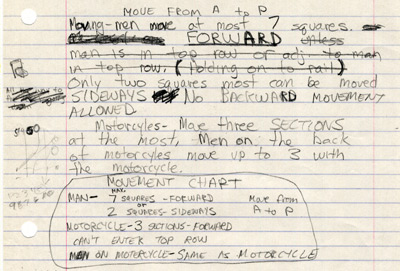 MOVE FROM A to P
Moving-men move at most 7 squares.
FORWARD unless
man is in top row or adj. to man
in top row. (holding on to rail)
Only two squares most can be moved
SIDEWAYS No BACKWARD MOVEMENT
ALLOWED.
Motorcyles- Move three SECTIONS
at the most, Men on the back
of motorcyles move up to 3 with
the motorcycle.
MOVEMENT CHART
MAN- MAX. 7 SQUARES - FORWARD Move from
or
2 SQUARES-SIDEWAYS A to P
MOTORCYCLE-3 SECTIONS-FORWARD
CAN'T ENTER TOP ROW
MAN ON MOTORCYCLE-SAME AS MOTORCYCLE